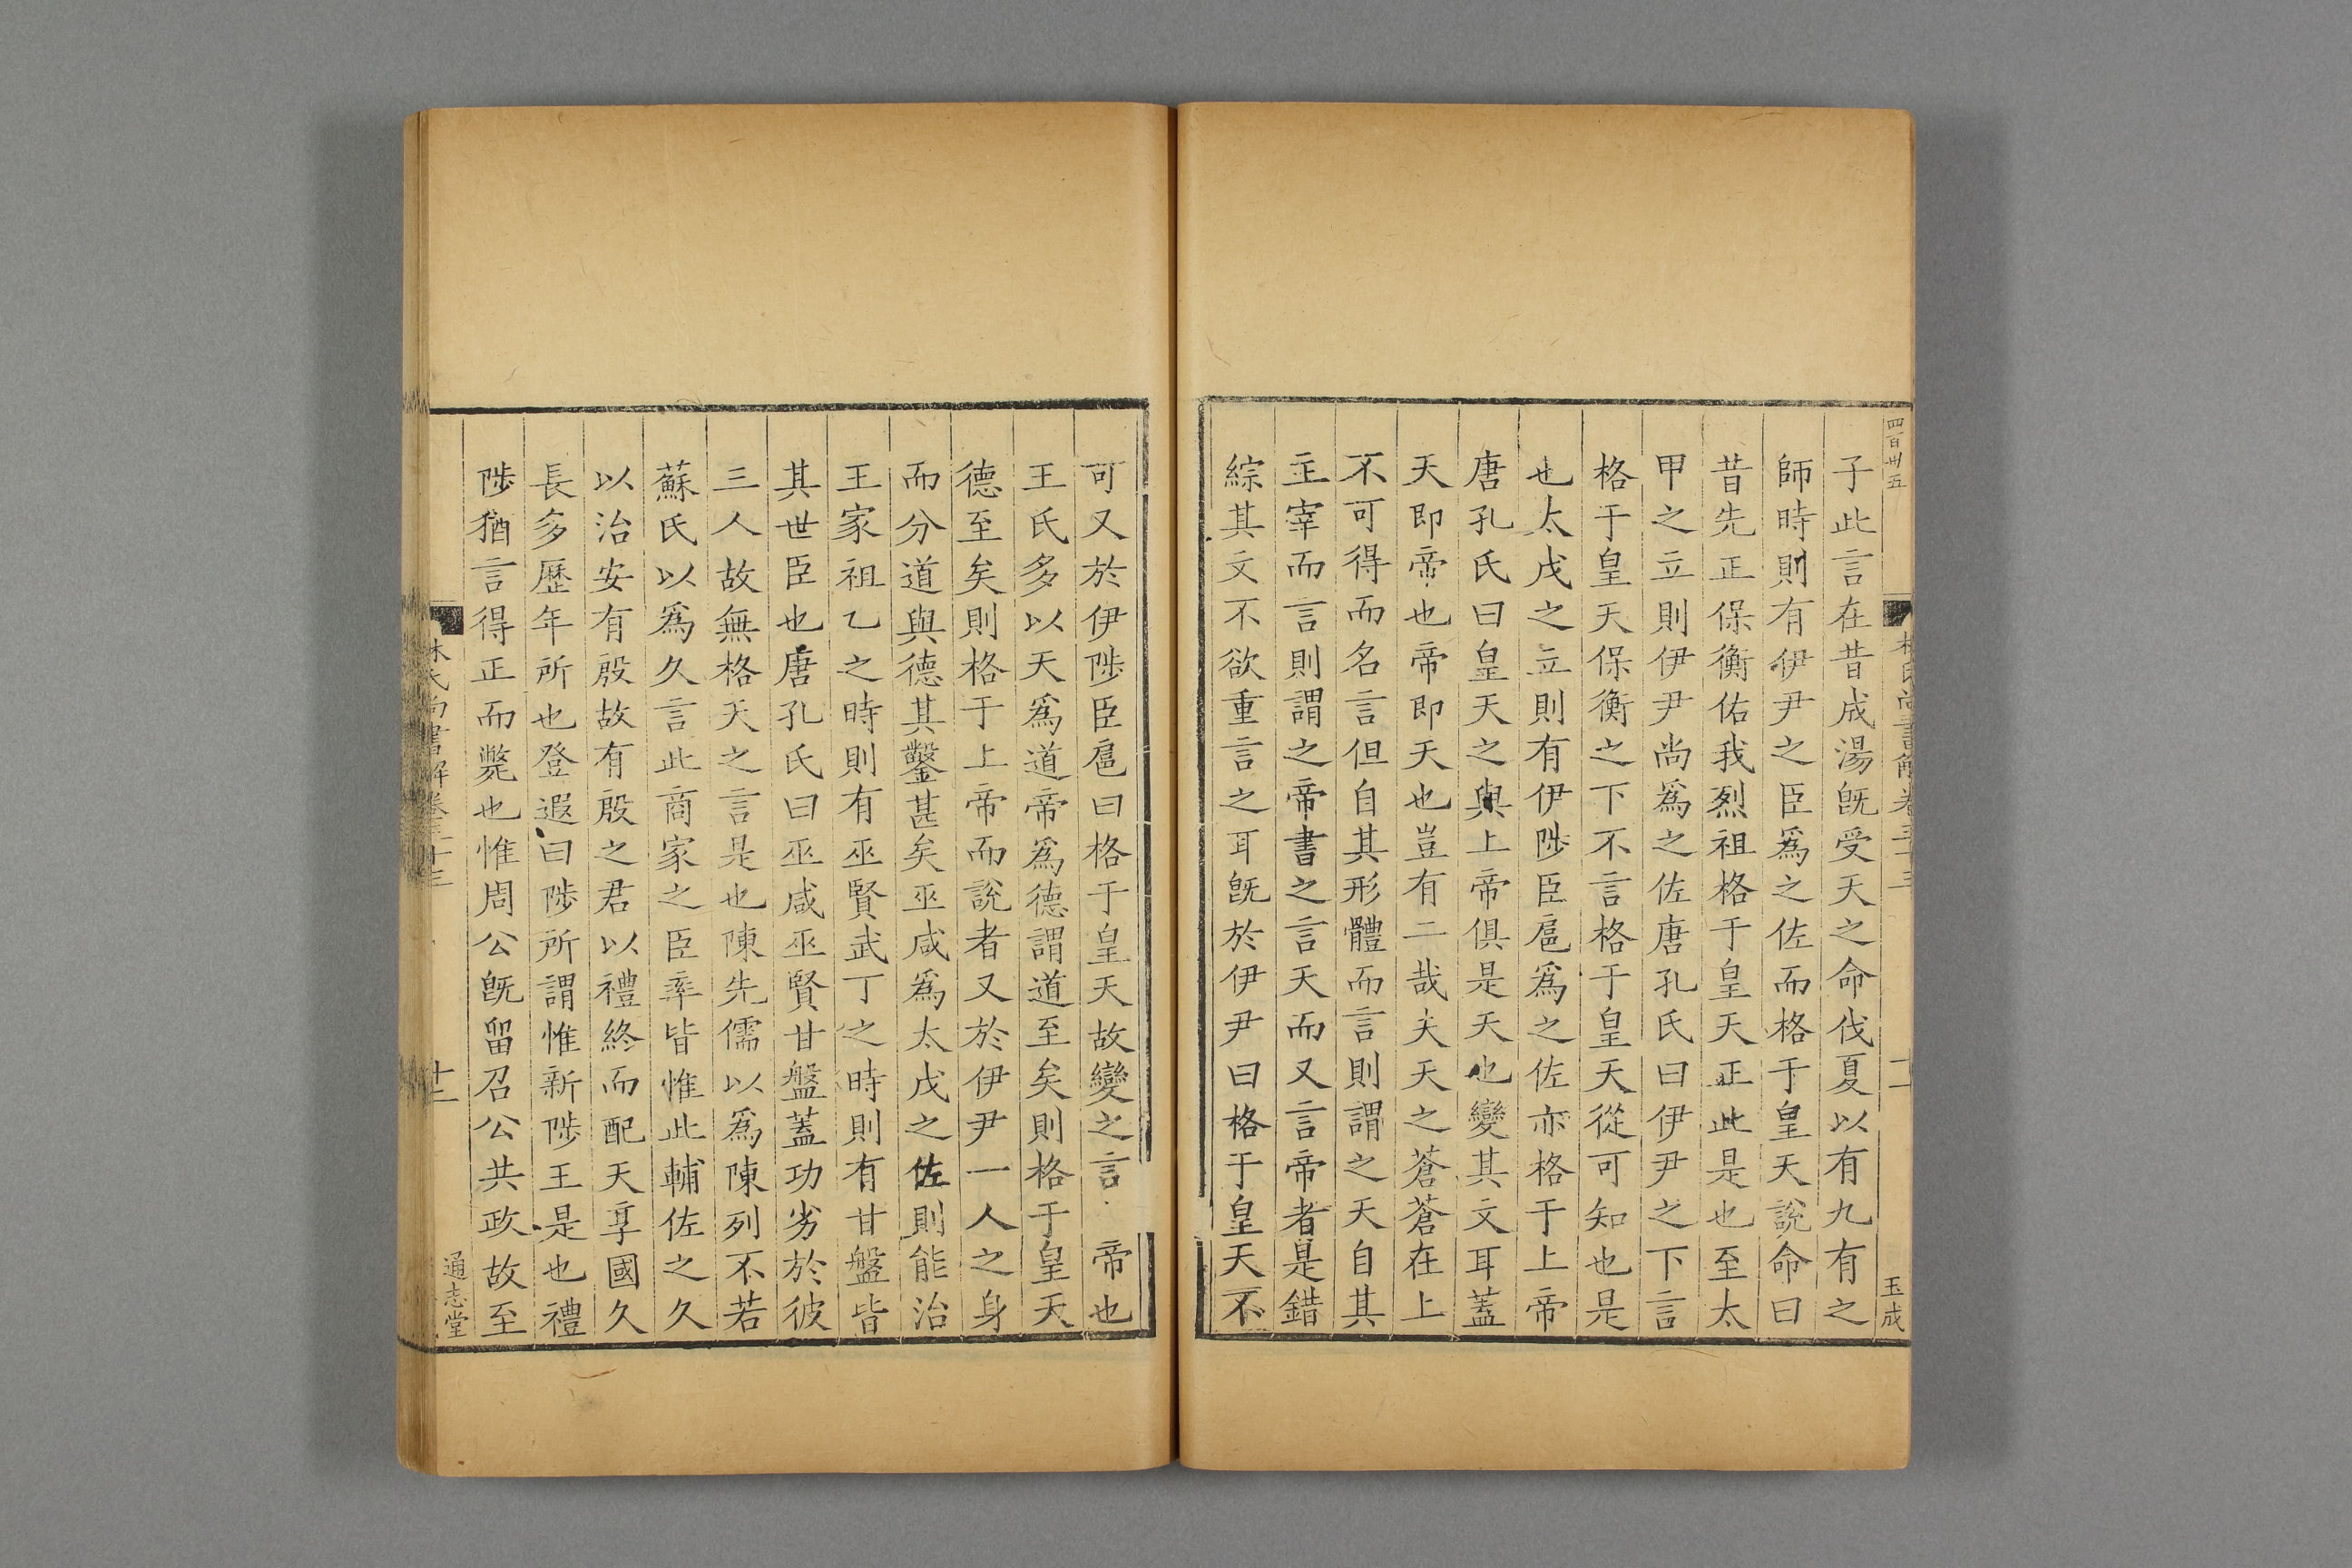 四百卅五
林氏尚書解卷三十三
十一
玉成
子此言在昔成湯旣受天之命伐夏以有九有之
師時則有伊尹之臣爲之佐而格于皇天說命曰
昔先正保衡佑我烈祖格于皇天正此是也至太
甲之立則伊尹尚爲之佐唐孔氏曰伊尹之下言
格于皇天保衡之下不言格于皇天從可知也是
也太戊之立則有伊陟臣扈爲之佐亦格于上帝
唐孔氏曰皇天之與上帝俱是天也變其文耳蓋
天即帝也帝即天也豈有二哉夫天之蒼蒼在上
不可得而名言但自其形體而言則謂之天自其
主宰而言則謂之帝書之言天而又言帝者是錯
綜其文不欲重言之耳旣於伊尹曰格于皇天不
可又於伊陟臣扈曰格于皇天故變之言 帝也
王氏多以天爲道帝爲德謂道至矣則格于皇天
德至矣則格于上帝而說者又於伊尹一人之身
而分道與德其鑿甚矣巫咸爲太戊之佐則能治
王家祖乙之時則有巫賢武丁之時則有甘盤皆
其世臣也唐孔氏曰巫咸巫賢甘盤蓋功劣於彼
三人故無格天之言是也陳先儒以爲陳列不若
蘇氏以爲久言此商家之臣率皆惟此輔佐之久
以治安有殷故有殷之君以禮終而配天享國久
長多歷年所也登遐曰陟所謂惟新陟王是也禮
陟猶言得正而斃也惟周公旣留召公共政故至
林氏尚書解卷三十三
十二
通志堂